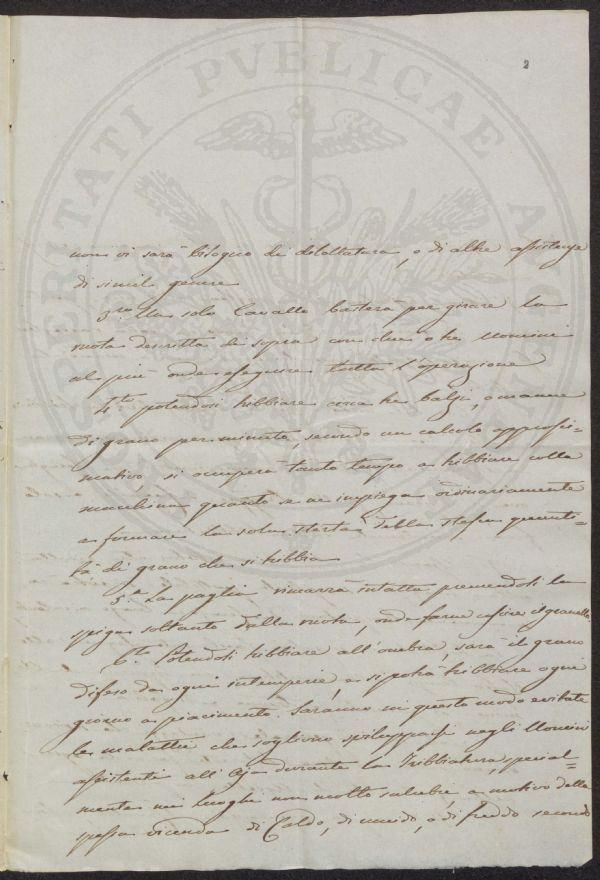 2
non vi sarà bisogno di dilettatura, o di altre assistenze
di simil genere
3.zo Un solo Cavallo basterà per girare la
ruota descritta di sopra con due o tre Uomini
al più onde eseguire tutta l'operazione
4.to potendosi tribbiare circa tre balzi, o manne
di grano per minuto secondo un calcolo approssi-
mativo, si occuperà tanto tempo a tribbiare colla
macchina quanto se ne impiega ordinariamente
a formare la sola sterta della stessa quanti=
tà di grano che si tribbia
5.to La paglia rimarrà intatta premendosi la
spiga soltanto dalla ruota, onde farne uscire il granello
6.to Potendosi tribbiare all'ombra sarà il grano
difeso da ogni intemperie, e si potrà tribbiare ogni
giorno a piacimento. Saranno in questo modo evitate
le malattie che sogliono svilupparsi negli Uomini
assistenti all'Aja durante la Tribbiatura, special-
mente nei luoghi non molto salubri a motivo della
spessa vicenda di Caldo, di umido, o di freddo secondo
PVBLICAE